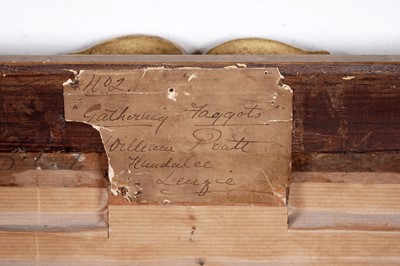 No 2.
"Gathering Faggots
William Pratt
Hundalee
Lenzie